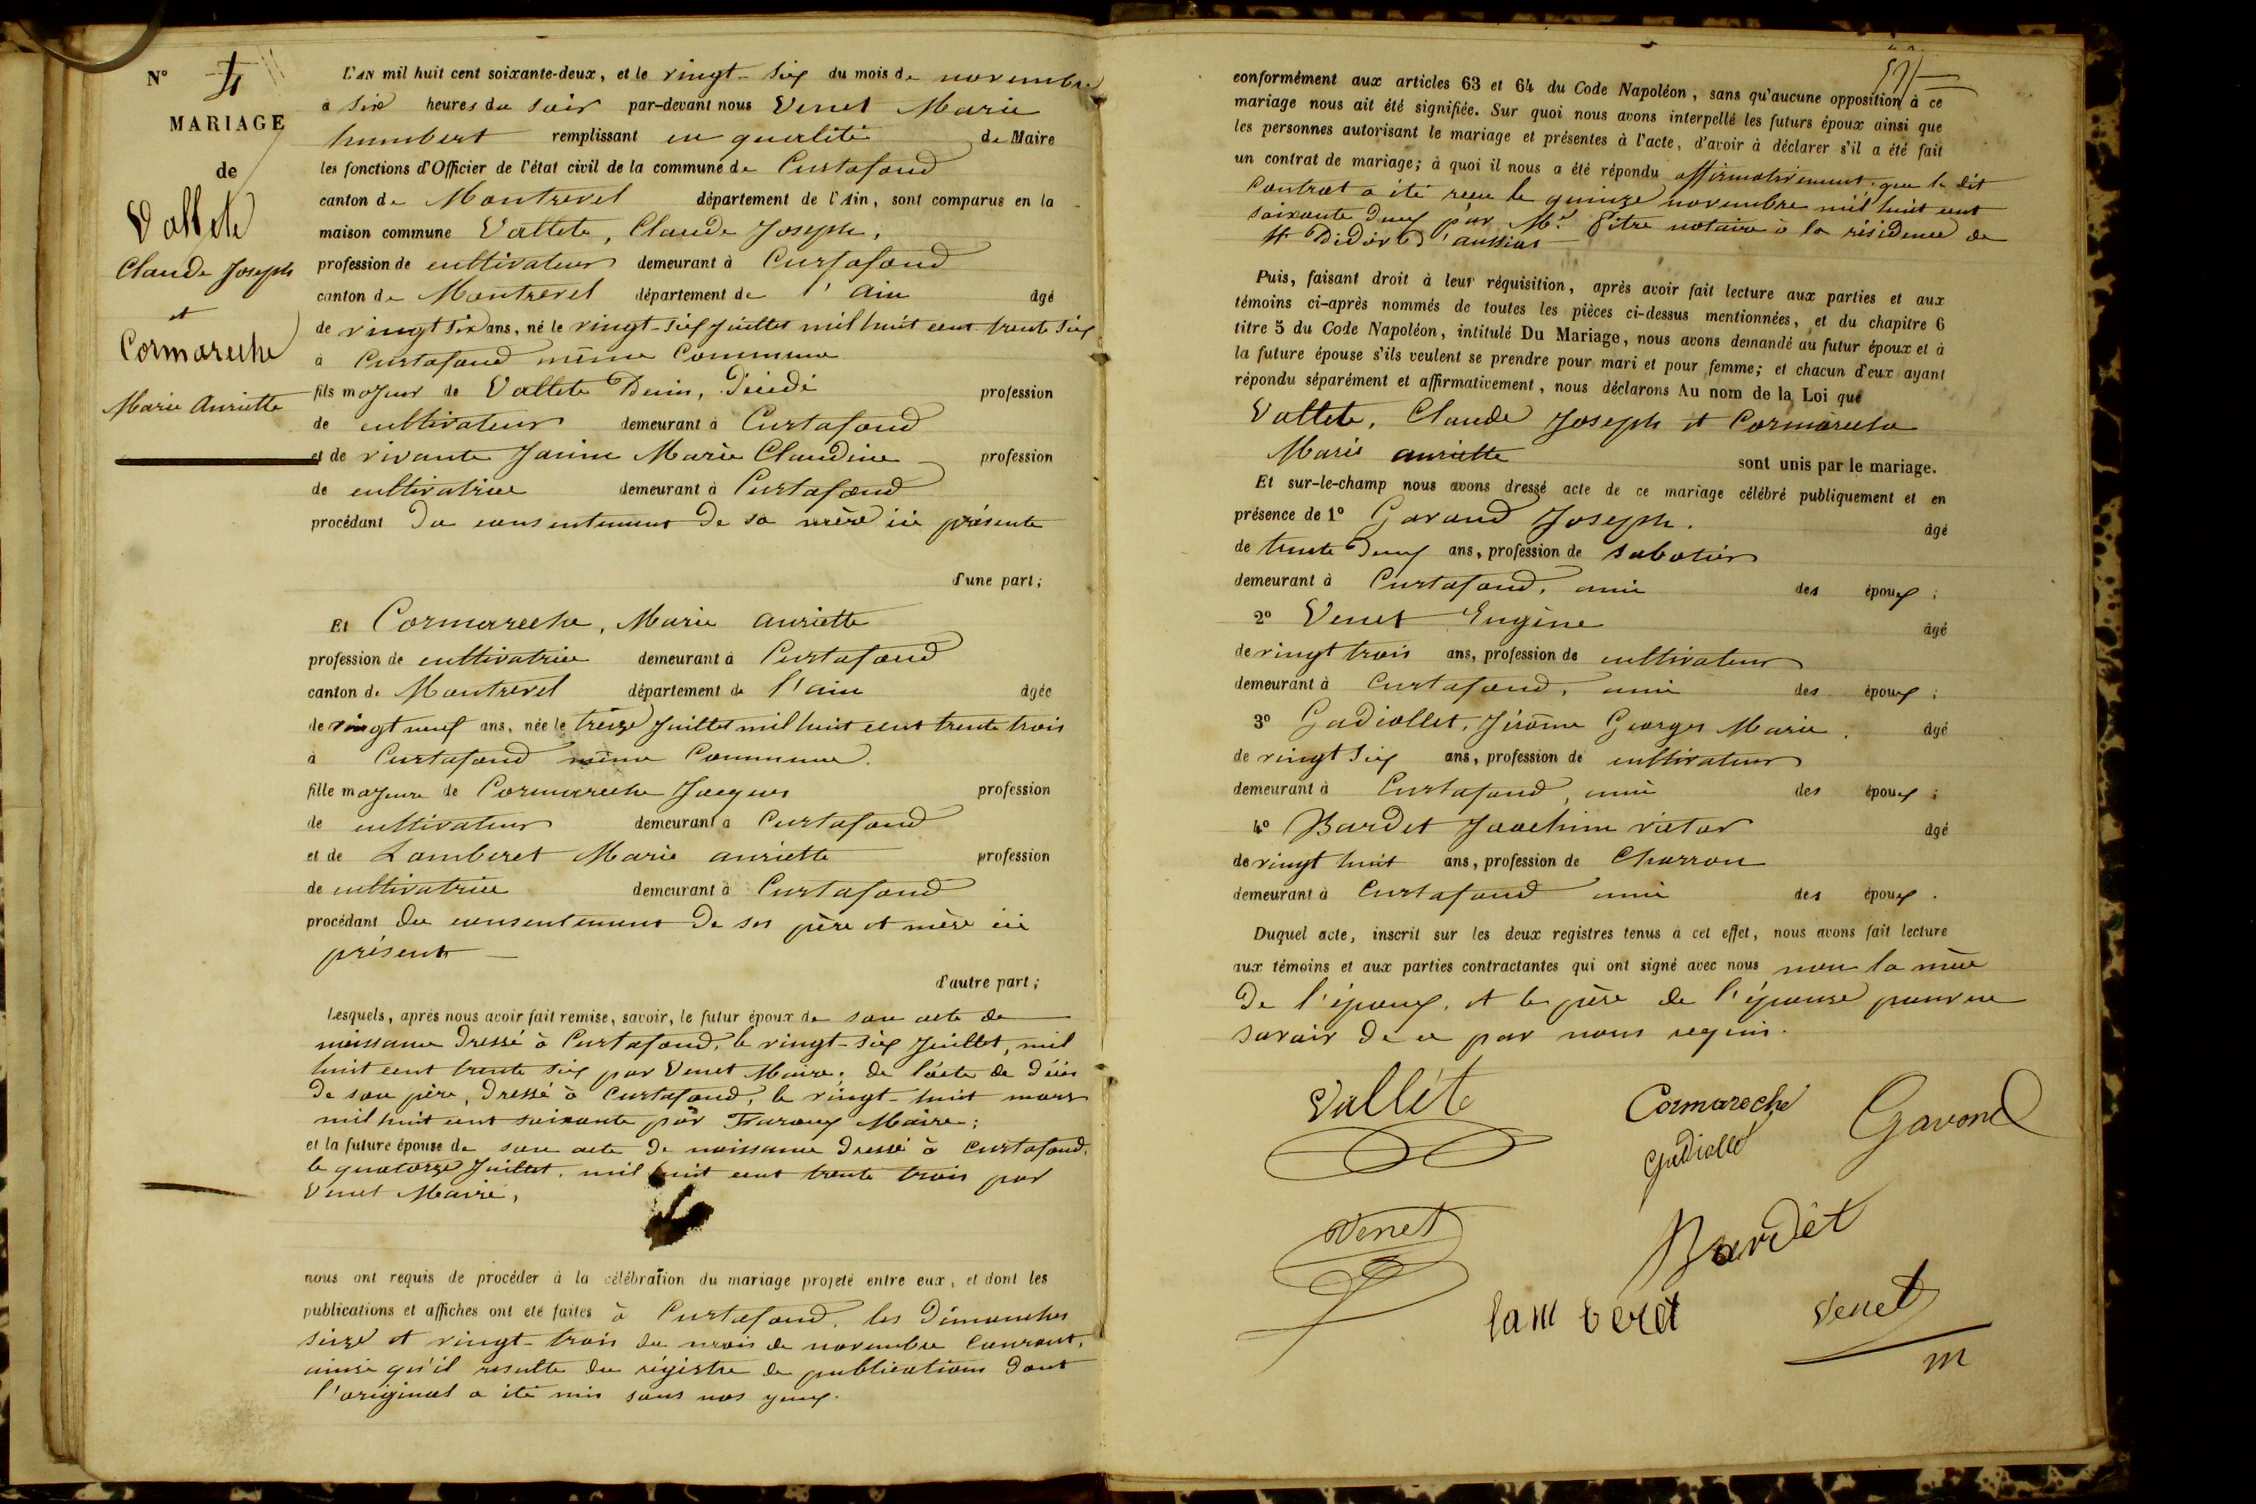 N° 4
MARIAGE
de
Vallete
Claude Joseph
et
Cormareche
Marie Auriette
L'AN mil huit cent soixante-deux, et le vingt-six du mois de novembre
à six heures du soir par-devant nous Venet Marie
humbert remplissant en qualité de Maire
les fonctions d'Officier de l'état civil de la commune de Curtafond
canton de Montrevel département de l'Ain, sont comparus en la
maison commune Vallete, Claude Joseph,
profession de cultivateur demeurant à Curtafond
canton de Montrevel département de l'ain âgé
de vingt six ans, né le vingt-six juillet mil huit cent trente six
à Curtafond même Commune
fils majeur de Vallete Denis, Décédé profession
de cultivateur demeurant à Curtafond
et de vivante Janin Marie Claudine profession
de cultivatrice demeurant à Curtafond
procédant du consentement de sa mère ici présente
d'une part;
Et Cormareche, Marie auriette
profession de cultivatrice demeurant à Curtafond
canton de Montrevel département de l'ain âgée
de vingt neuf ans, née le treize Juillet mil huit cent trente trois
à Curtafond même Commune.
fille majeure de Cormareche Jacques profession
de cultivateur demeurant à Curtafond
et de Lamberet Marie auriette profession
de cultivatrice demeurant à Curtafond
procédant du consentement de ses père et mère ici
présents
d'autre part;
Lesquels, après nous avoir fait remise, savoir, le futur époux de son acte de
naissance dressé à Curtafond, le vingt-six Juillet, mil
huit cent trente six par Venet Maire; de l'acte de décès
de son père, dressé à Curtafond, le vingt-huit mars
mil huit cent soixante par Maire;
et la future épouse de son acte de naissance dressé à Curtafond,
le quatorze Juillet, mil huit cent trente trois par
Venet Maire,
nous ont requis de procéder à la célébration du mariage projeté entre eux, et dont les
publications et affiches ont été faites à Curtafond, les Dimanches
seize et vingt-trois du mois de novembre Courant,
ainsi qu'il resulte du régistre de publications dont
l'original a été mis sous nos yeux.
conformément aux articles 63 et 64 du Code Napoléon, sans qu'aucune opposition à ce
mariage nous ait été signifiée. Sur quoi nous avons interpellé les futurs époux ainsi que
les personnes autorisant le mariage et présentes à l'acte, d'avoir à déclarer s'il a été fait
un contrat de mariage; à quoi il nous a été répondu affirmativement, que le dit
Contrat a été recu le quinze novembre mil huit cent
soixante deux par Me. Pitre notaire à la résidence de
St Didier d'aussiat
Puis, faisant droit à leur réquisition, après avoir fait lecture aux parties et aux
témoins ci-après nommés de toutes les pièces ci-dessus mentionnées, et du chapitre 6
titre 5 du Code Napoléon, intitulé Du Mariage, nous avons demandé au futur époux et à
la future épouse s'ils veulent se prendre pour mari et pour femme; et chacun d'eux ayant
répondu séparément et affirmativement, nous déclarons Au nom de la Loi que
Vallete, Claude Joseph et Cormareche
Marie auriette sont unis par le mariage.
Et sur-le-champ nous avons dressé acte de ce mariage célébré publiquement et en
présence de 1° Gavand Joseph. âgé
de trente deux ans, profession de sabotier
demeurant à Curtafond, ami des époux;
2° Venet Eugène âgé
de vingt trois ans, profession de cultivateur
demeurant à Curtafond, ami des époux;
3° Gadiollet, Jérôme Georges Marie, âgé
de vingt six ans, profession de cultivateur
demeurant à Curtafond, ami des époux;
4° Bardet Joachim victor âgé
de vingt huit ans, profession de Charron
demeurant à Curtafond ami des époux.
Duquel acte, inscrit sur les deux registres tenus à cet effet, nous avons fait lecture
aux témoins et aux parties contractantes qui ont signé avec nous non la mère
de l'époux, et le père de l'épouse pour ne
savoir de ce par nous requis.
Valléte Cormareche Gavand
Gadiollet
Venet Bardet
lamberet Venet
m